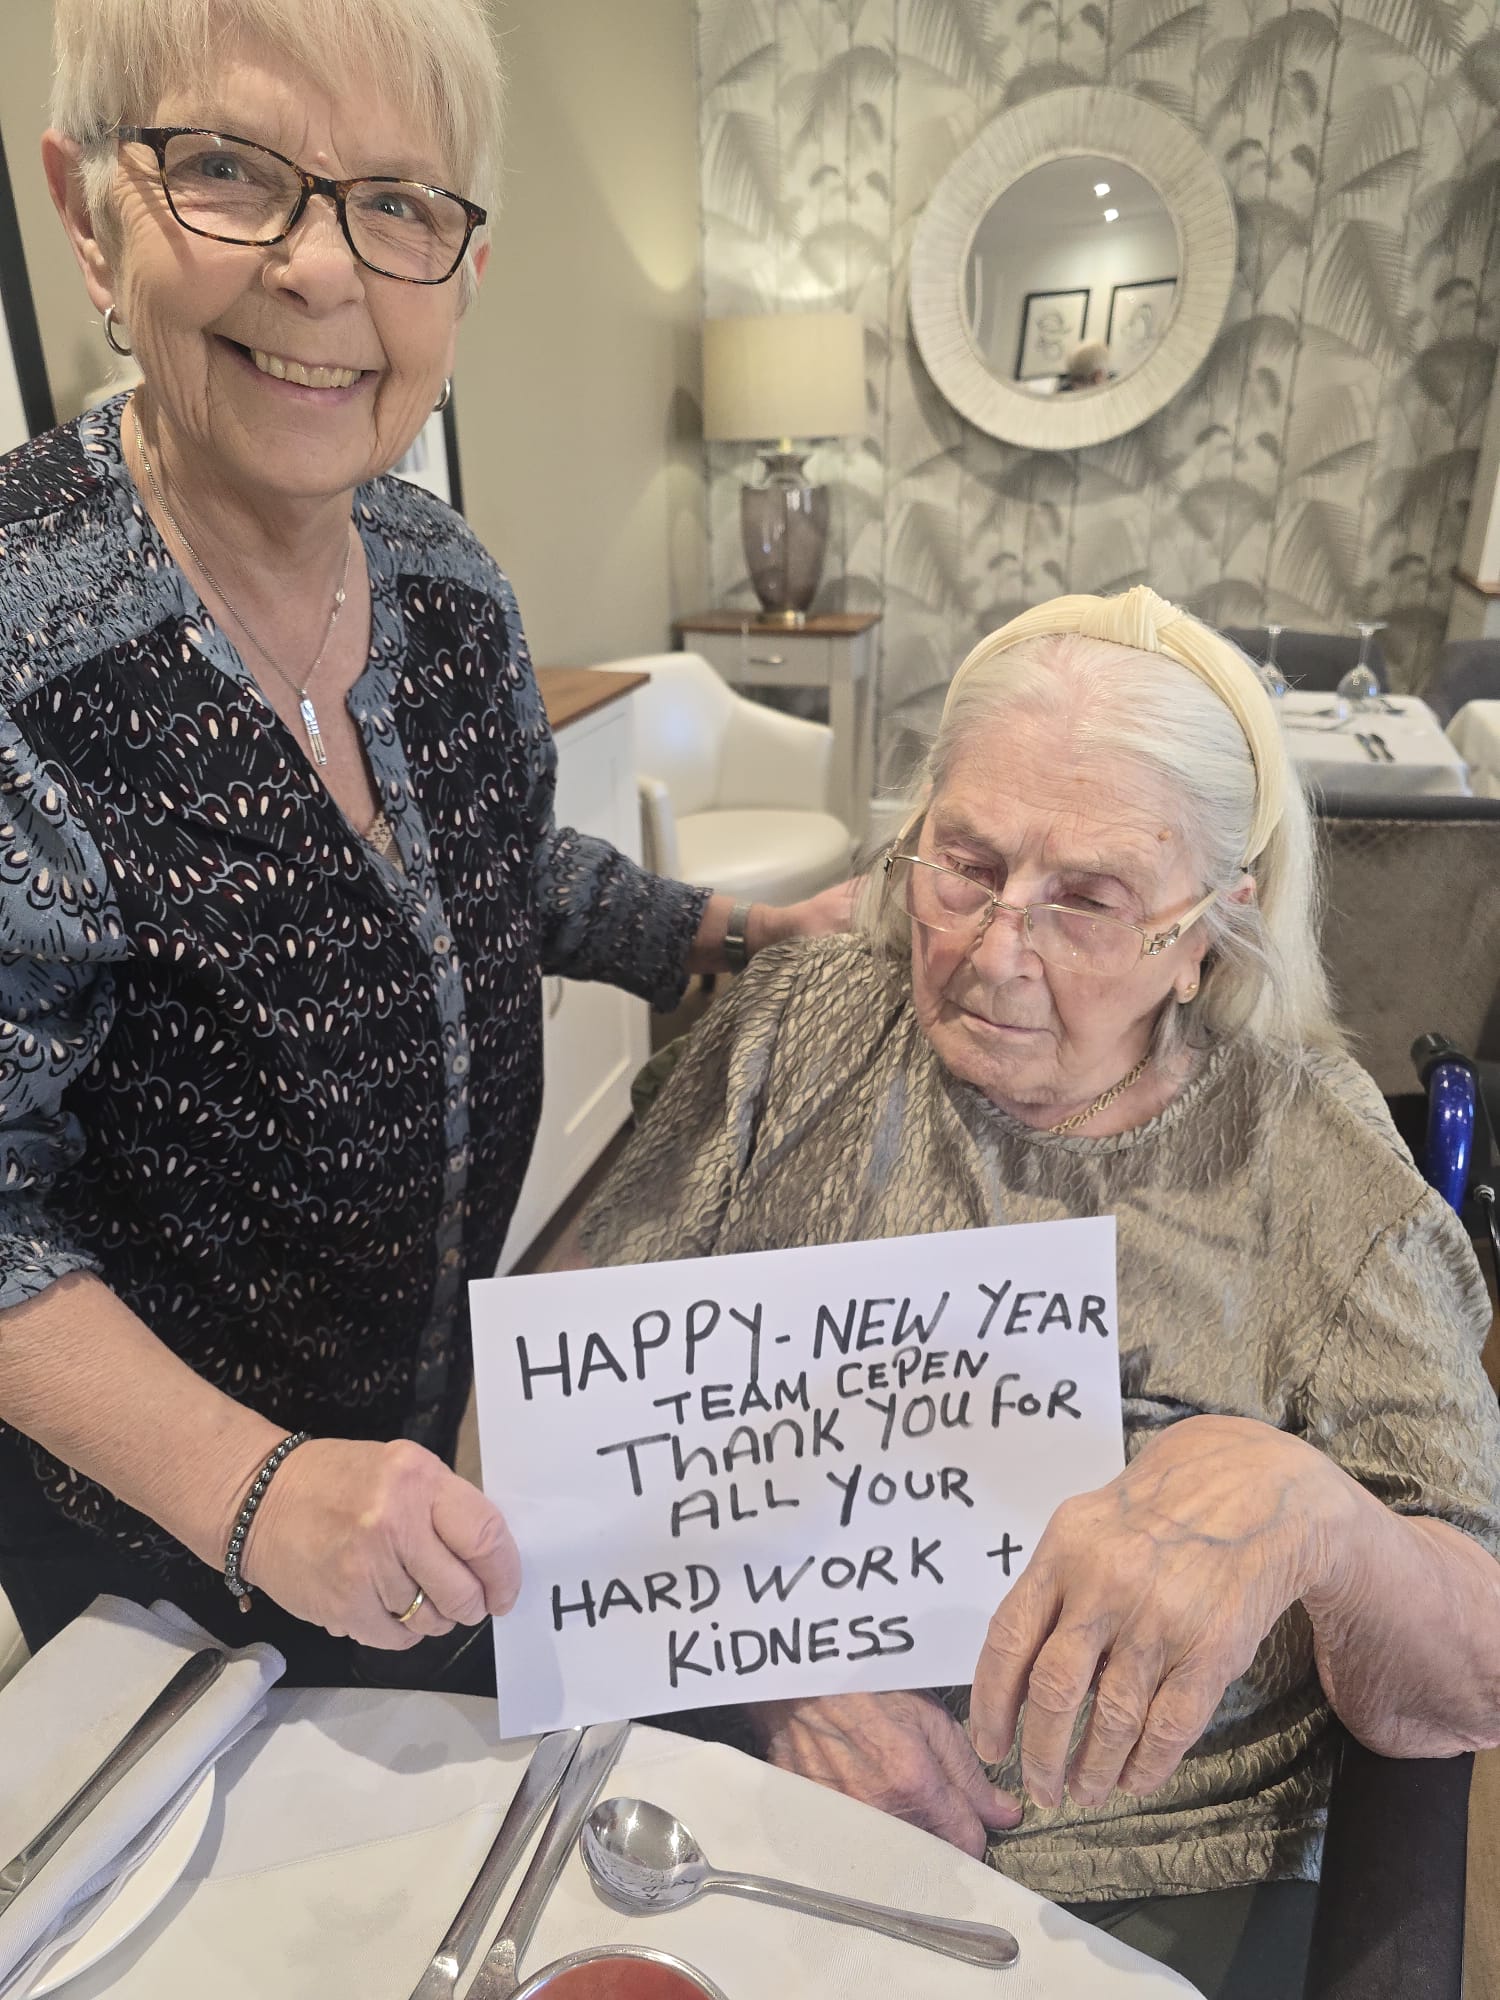 HAPPY - NEW YEAR
TEAM CEPEN
THANK YOU FOR
ALL YOUR
HARD WORK +
KiDNESS